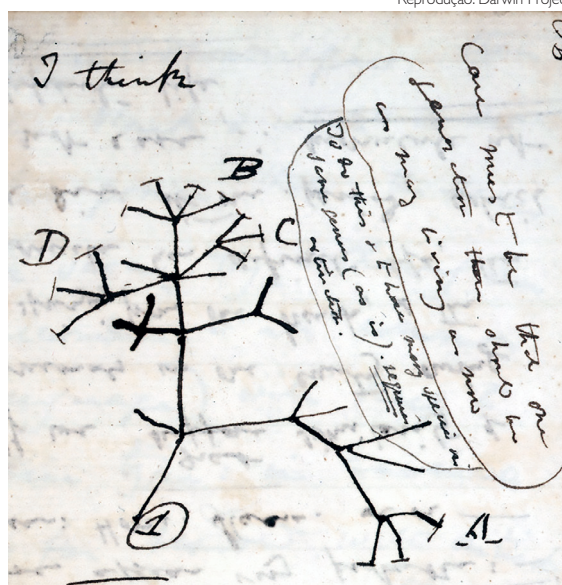 Reprodução: Darwin Projec
I think
Case must be that one
generation then should be
as many living as now
To do this & to have many species in
same genus (as is). requires
extinction.
B
C
D
A
1